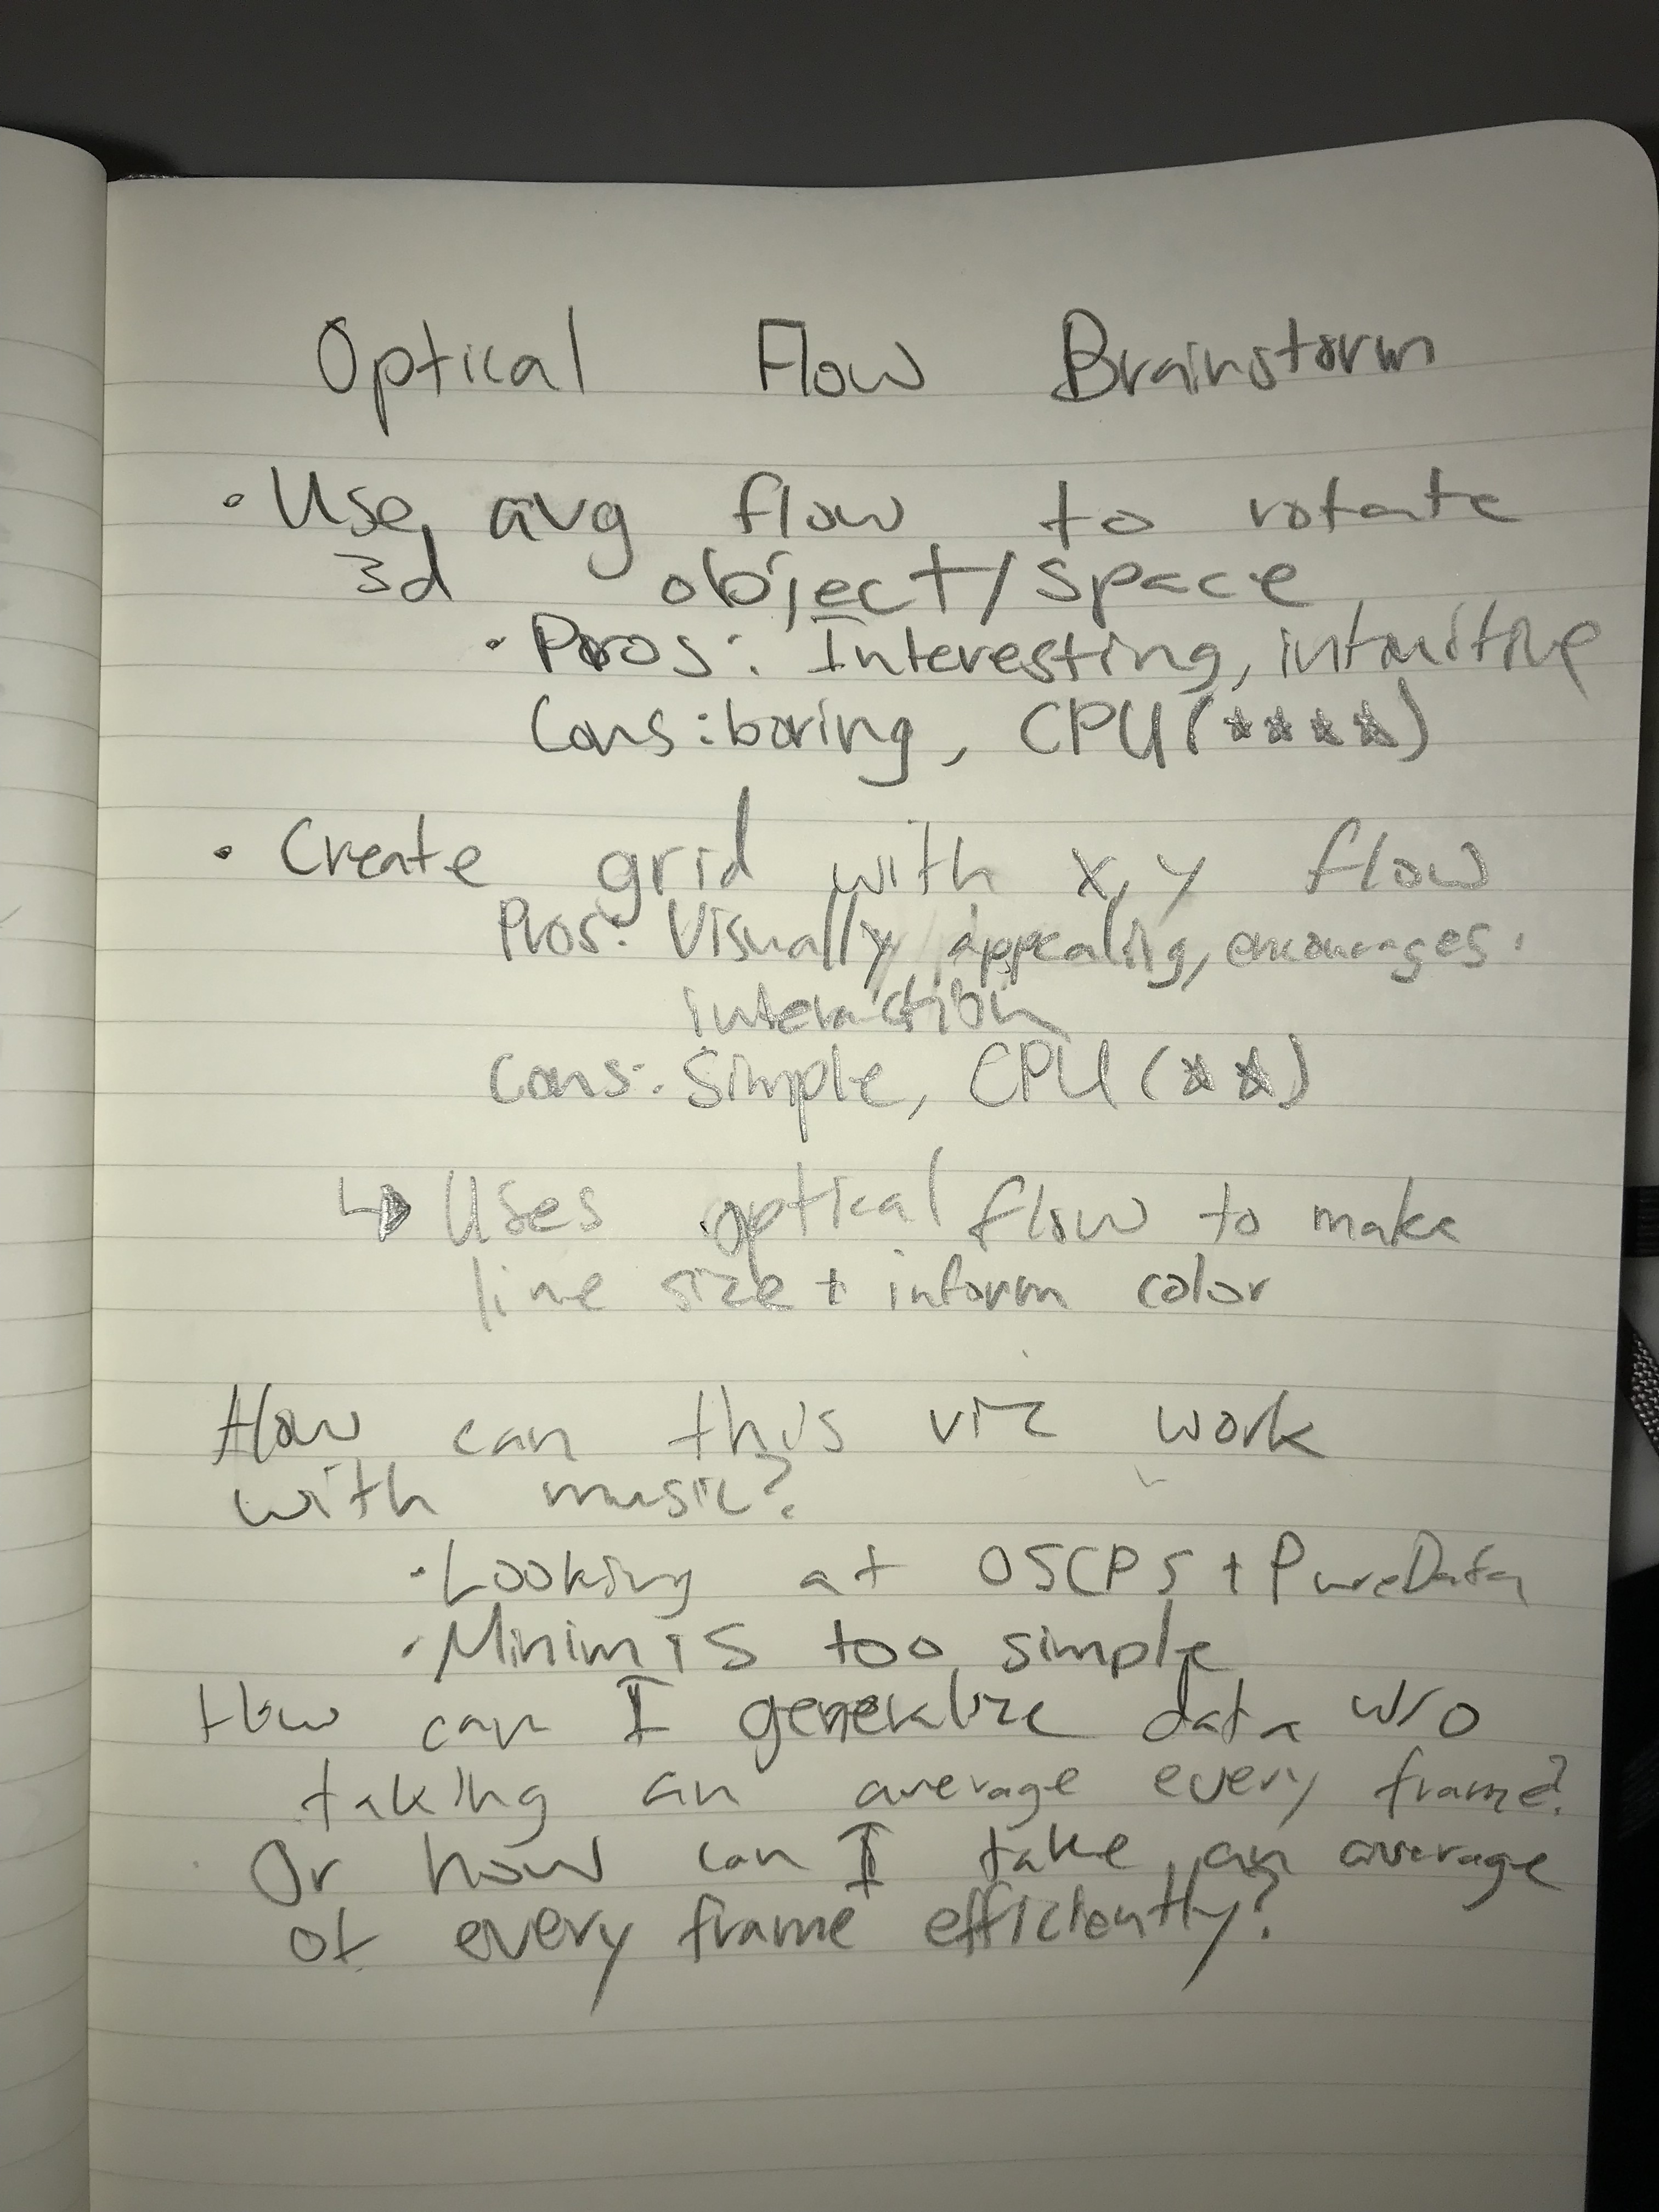 Optical Flow Brainstorm
• Use avg flow to rotate
3d object/space
• Pros: Interesting, intuitive
Cons: boring, CPU (★★★★)
• Create grid with x, y flow
Pros: Visually appealing, encourages
interaction
Cons: Simple, CPU (★★)
↳ Uses optical flow to make
line size + inform color
How can this viz work
with music?
• Looking at OSCP5 + PureData
• Minim is too simple
How can I generalize data w/o
taking an average every frame?
Or how can I take an average
of every frame efficiently?